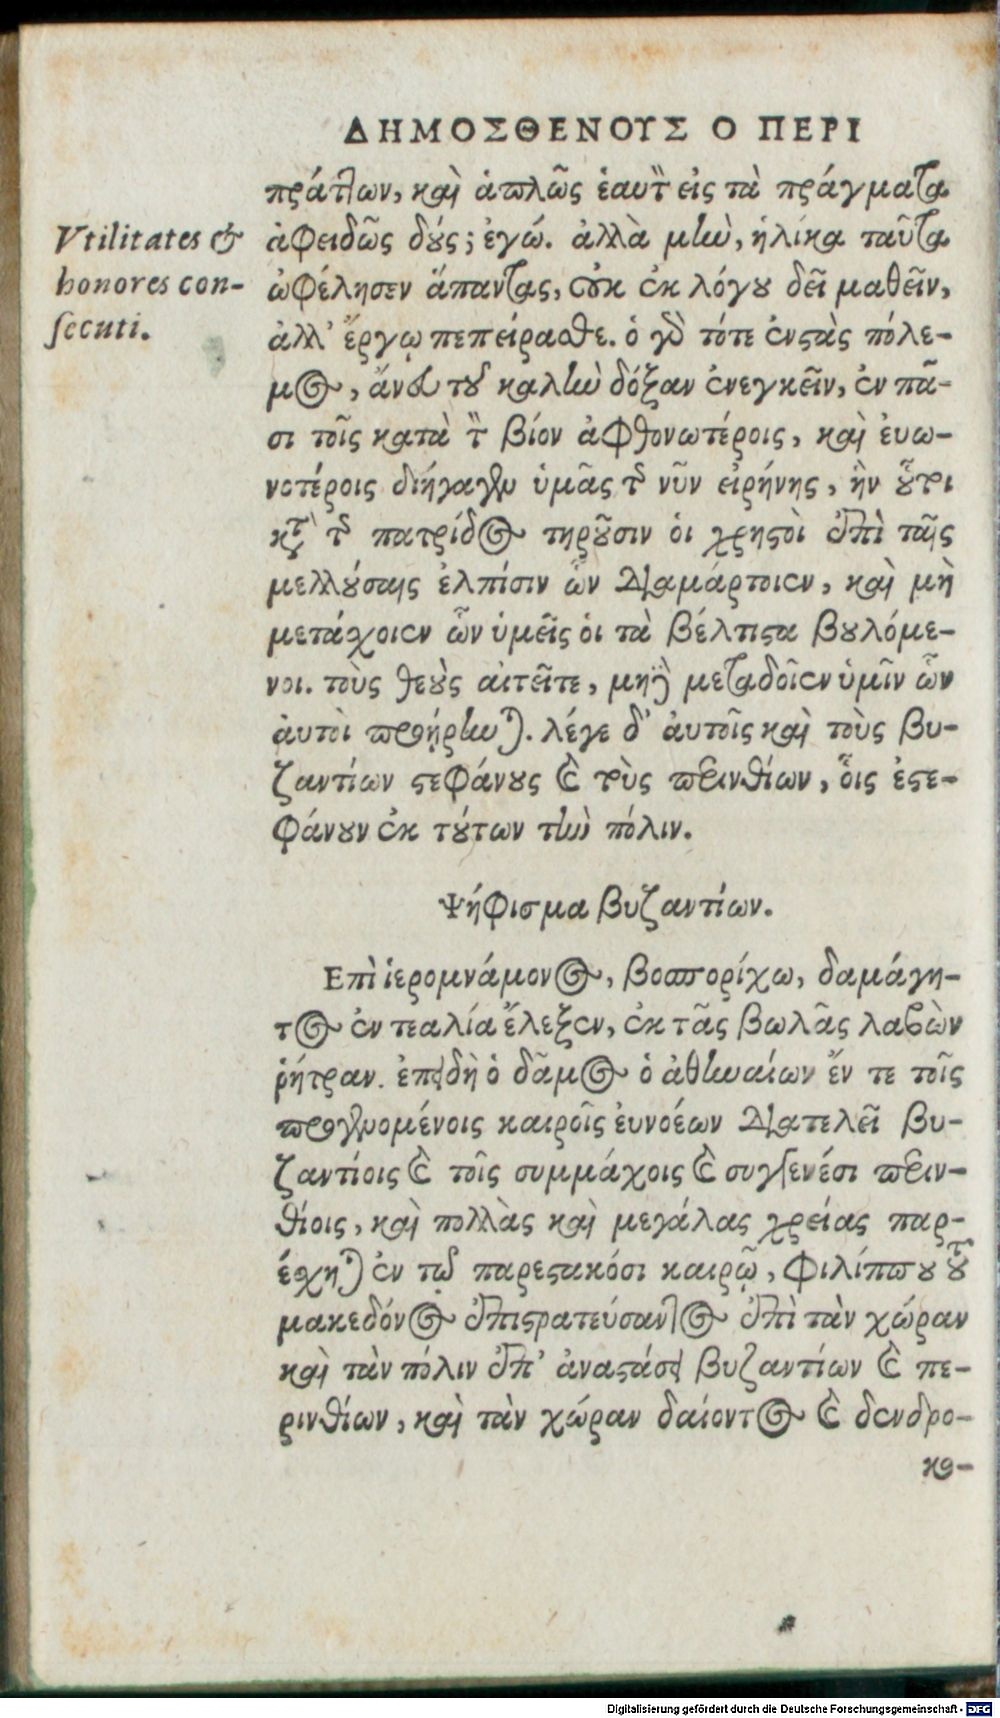 ΔΗΜΟΣΘΕΝΟΥΣ Ο ΠΕΡΙ
πράτ͂των, καὶ ἁπλῶς ἑαυτὸν εἰς τὰ πράγματα
ἀφειδῶς δούς; ἐγώ. ἀλλὰ μὴν, ἡλίκα ταῦτα
ὠφέλησεν ἅπαντας, οὐκ ἐκ λόγου δεῖ μαθεῖν,
ἀλλ' ἔργῳ πεπείρασθε. ὁ γὰρ τότε ἐνστὰς πόλε-
μος, ἄνευ τοῦ καλὴν δόξαν ἐνεγκεῖν, ἐν πᾶ-
σι τοῖς κατὰ τὸν βίον ἀφθονωτέροις, καὶ εὐω-
νοτέροις διήγαγεν ὑμᾶς τῆς νῦν εἰρήνης, ἣν οὗτοι
κατὰ τῆς πατρίδος τηροῦσιν οἱ χρηστοὶ ἐπὶ ταῖς
μελλούσαις ἐλπίσιν ὧν διαμάρτοιεν, καὶ μὴ
μετάχοιεν ὧν ὑμεῖς οἱ τὰ βέλτιστα βουλόμε-
νοι. τοὺς θεοὺς αἰτεῖτε, μηδὲ μεταδοῖεν ὑμῖν ὧν
αὐτοὶ προῄρηνται. λέγε δ' αὐτοῖς καὶ τοὺς βυ-
ζαντίων στεφάνους καὶ τοὺς περινθίων, οἷς ἐστε-
φάνουν ἐκ τούτων τὴν πόλιν.
Vtilitates &
honores con-
secuti.
Ψήφισμα βυζαντίων.
Επὶ ἱερομνάμονος, βοσπορίχω, δαμάγη-
τος ἐν τεαλία ἔλεξεν, ἐκ τᾶς βωλᾶς λαβὼν
ῥήτραν. ἐπειδὴ ὁ δᾶμος ὁ ἀθηναίων ἔν τε τοῖς
προγενομένοις καιροῖς εὐνοέων διατελεῖ βυ-
ζαντίοις καὶ τοῖς συμμάχοις καὶ συγγενέσι περιν-
θίοις, καὶ πολλὰς καὶ μεγάλας χρείας παρ-
έχηται ἐν τῷ παρεστακόσι καιρῷ, φιλίππου τοῦ
μακεδόνος ἐπιστρατεύσαντος ἐπὶ τὰν χώραν
καὶ τὰν πόλιν ἐπ' ἀναστάσει βυζαντίων καὶ πε-
ρινθίων, καὶ τὰν χώραν δαίοντος καὶ δενδρο-
κο-
Digitalisierung gefördert durch die Deutsche Forschungsgemeinschaft - DFG